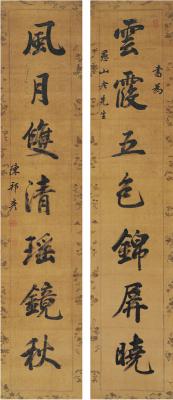 書為
愚山老先生
雲霞五色錦屏曉
風月雙清瑤鏡秋
陳邦彥